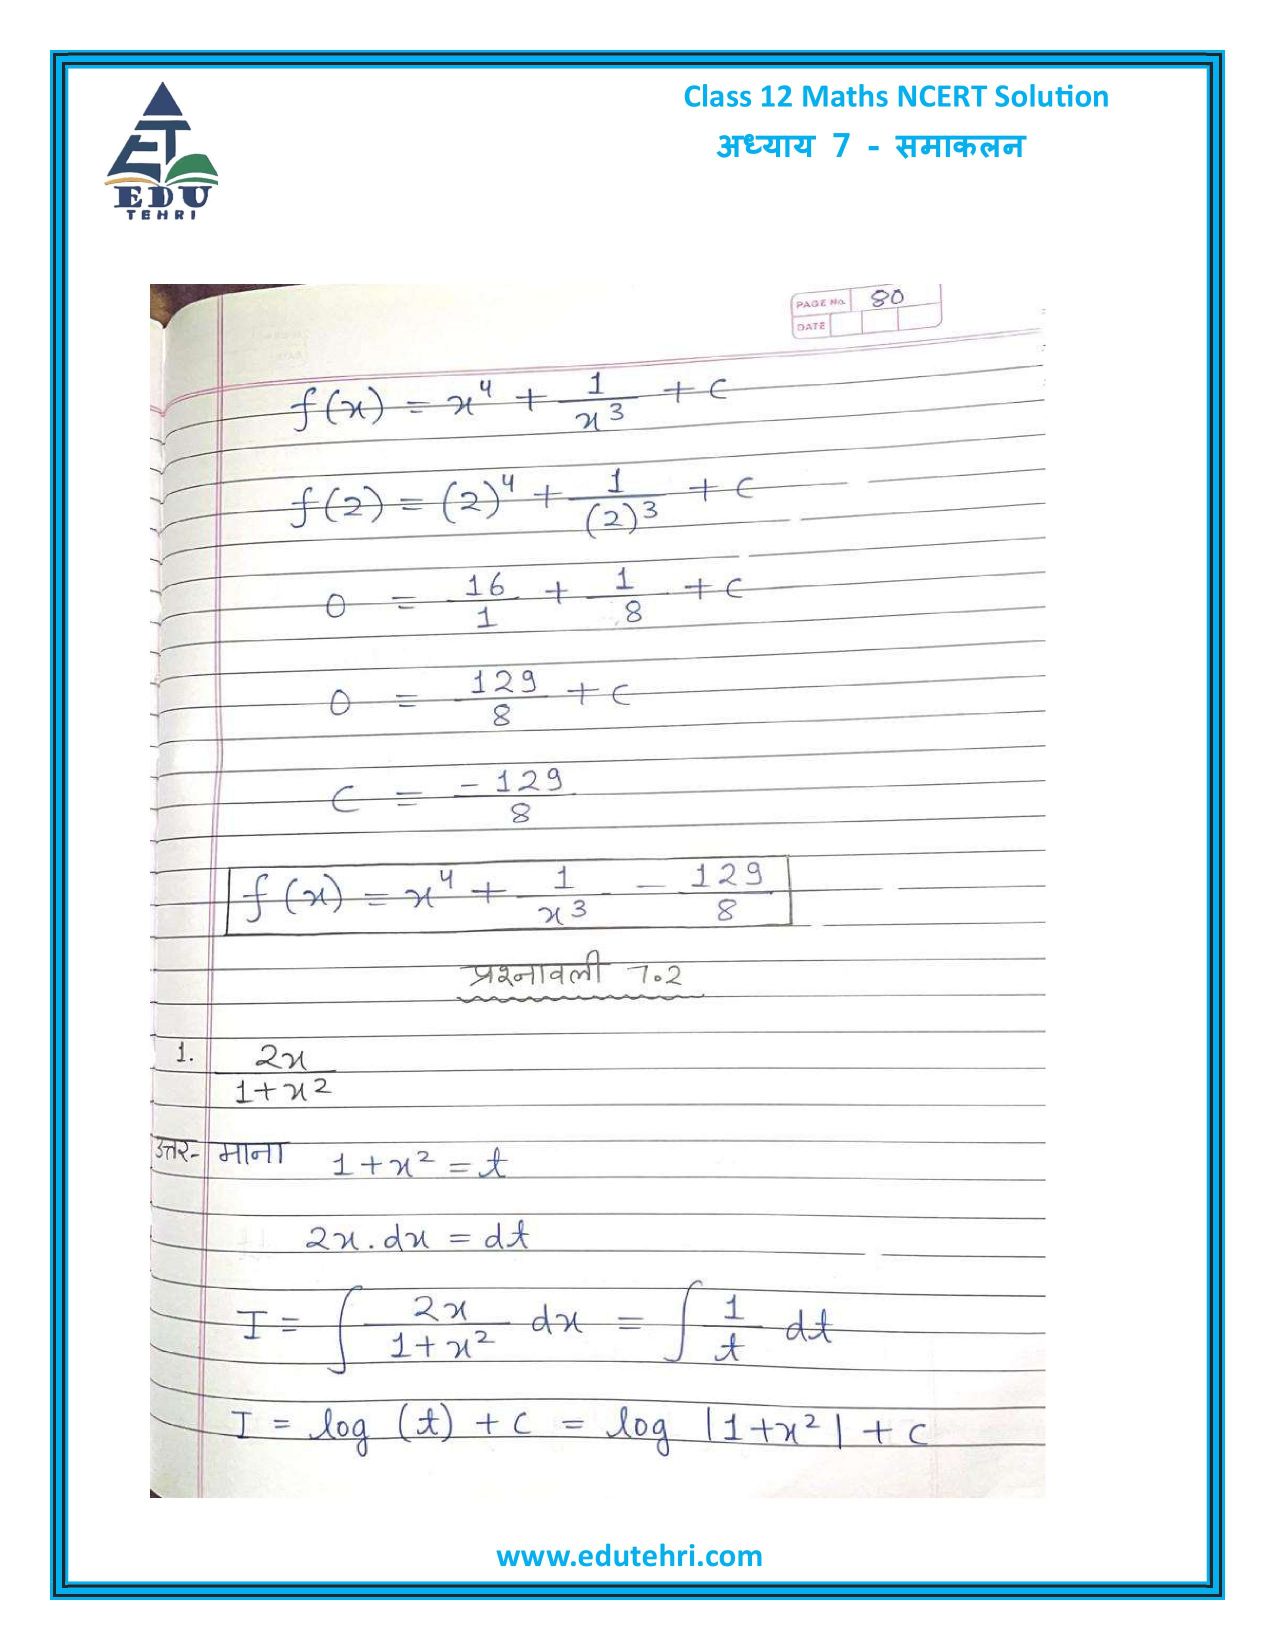 Class 12 Maths NCERT Solution
अध्याय 7 - समाकलन
EDU
TEHRI
PAGE No. 80
DATE
f(x) = x⁴ + 1/x³ + C
f(2) = (2)⁴ + 1/(2)³ + C
0 = 16/1 + 1/8 + C
0 = 129/8 + C
C = -129/8
f(x) = x⁴ + 1/x³ - 129/8
प्रश्नावली 7.2
1. 2x/1+x²
उत्तर- माना 1+x² = t
2x.dx = dt
I = ∫ 2x/1+x² dx = ∫ 1/t dt
I = log (t) + C = log |1+x²| + C
www.edutehri.com